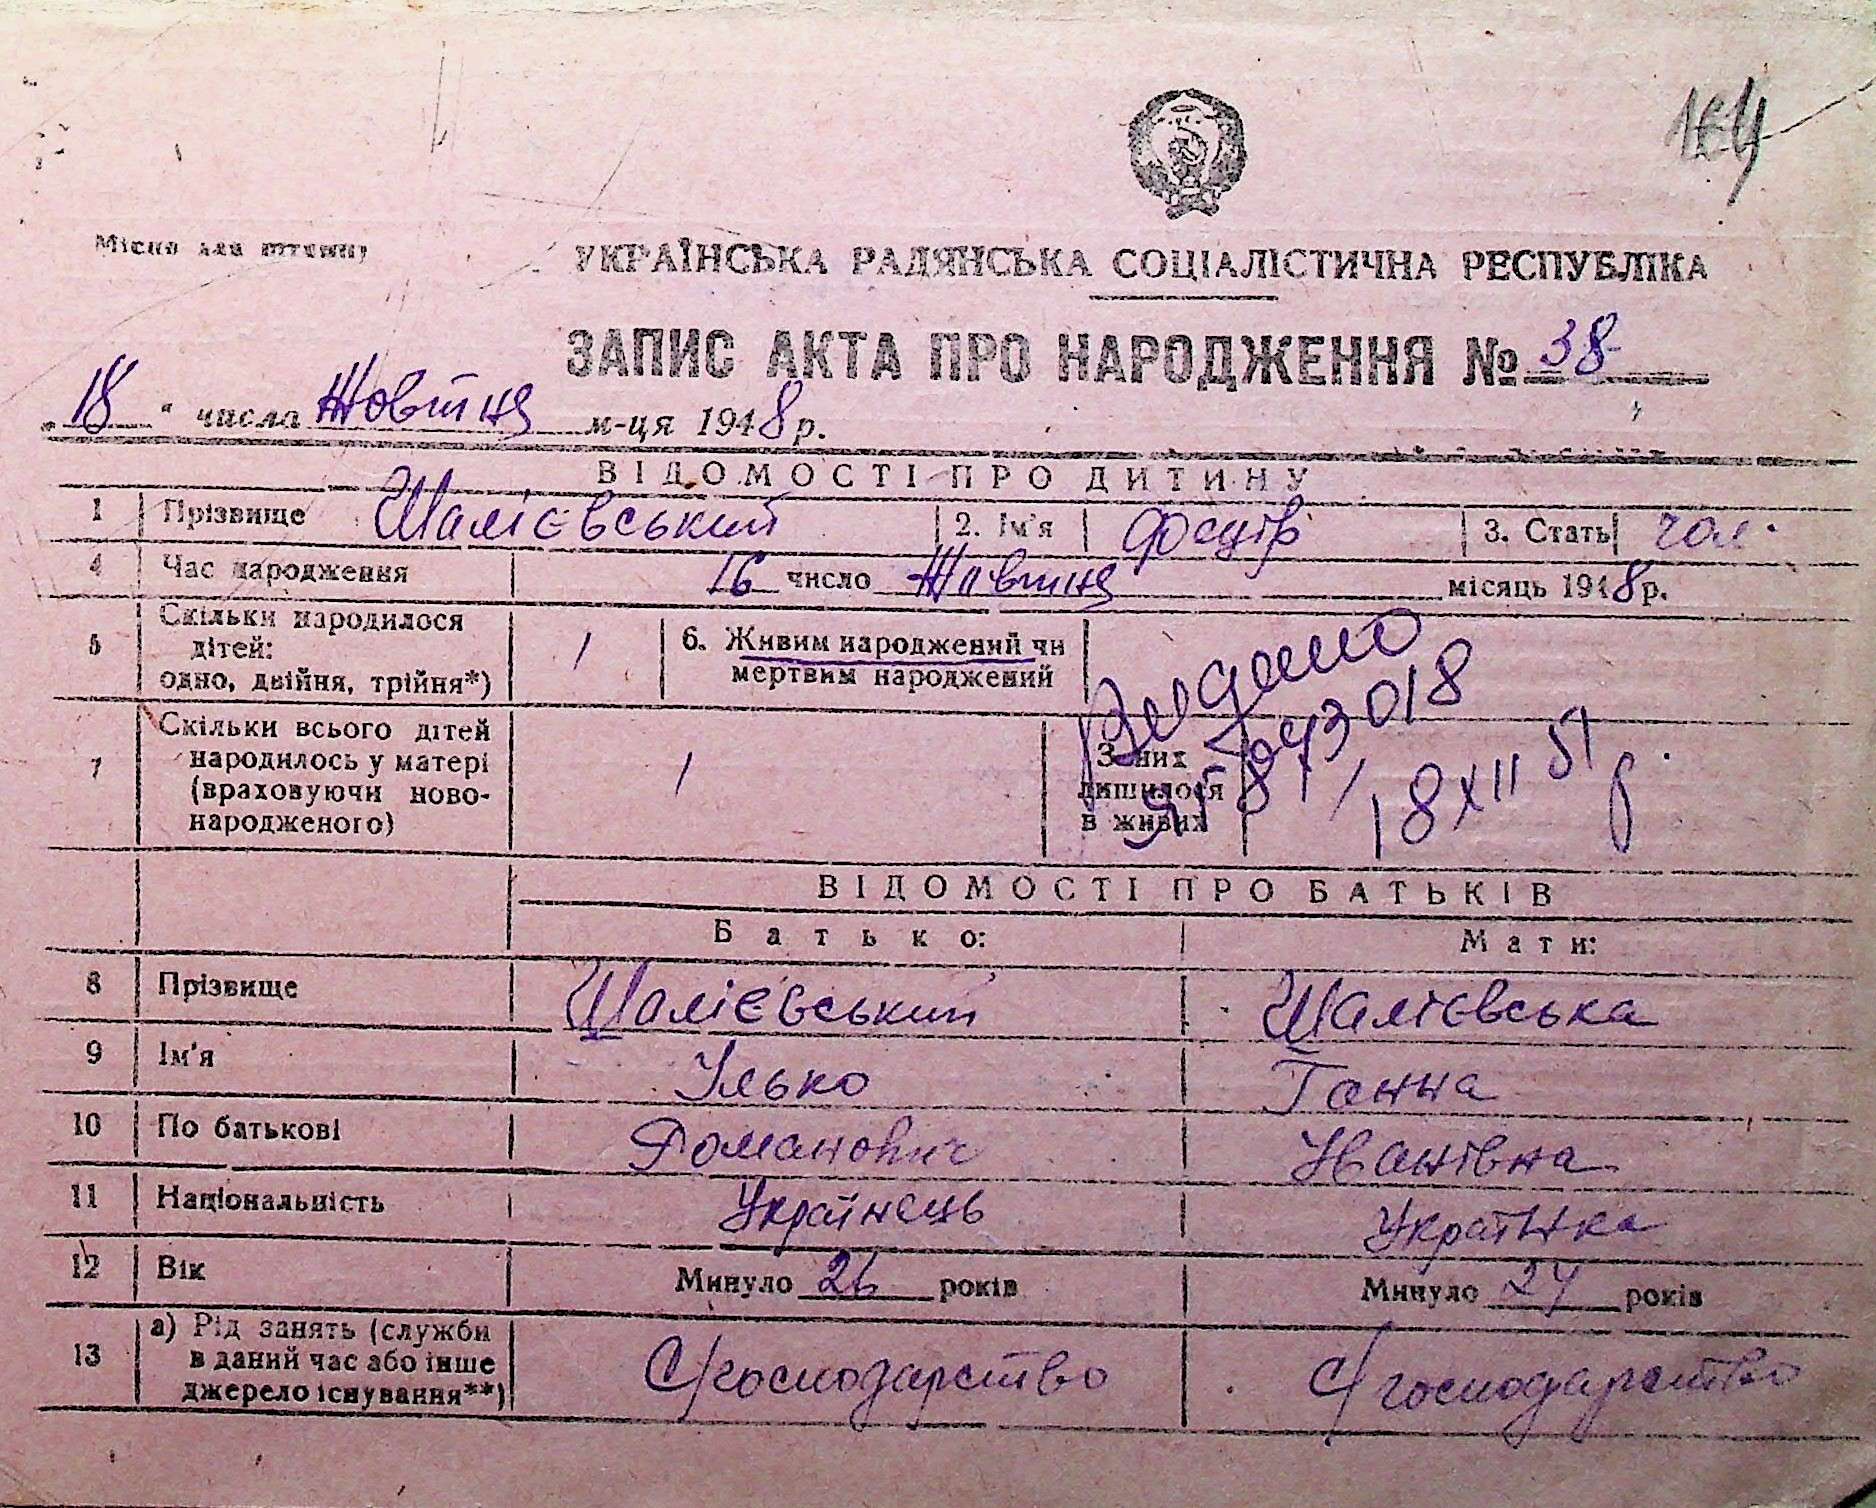 Місце для штампу
УКРАЇНСЬКА РАДЯНСЬКА СОЦІАЛІСТИЧНА РЕСПУБЛІКА
ЗАПИС АКТА ПРО НАРОДЖЕННЯ № 38
"18" числа Жовтня м-ця 1948 р.
ВІДОМОСТІ ПРО ДИТИНУ
1 Прізвище Шалієвський 2. Ім'я 3. Стать чол.
4 Час народження 16 число Жовтня місяць 1948 р.
5 Скільки народилося дітей: одно, двійня, трійня*) 1 6. Живим народжений чи мертвим народжений
Видано
043018
7 Скільки всього дітей народилось у матері (враховуючи ново-народженого) 1 З них лишилося в живих 1
18 XII 51 р.
ВІДОМОСТІ ПРО БАТЬКІВ
Батько: Мати:
8 Прізвище Шалієвський Шалієвська
9 Ім'я Ілько Ганна
10 По батькові Романович Іванівна
11 Національність Українець Українка
12 Вік Минуло 26 років Минуло 24 років
13 а) Рід занять (служби в даний час або інше джерело існування**) С/господарство С/господарство